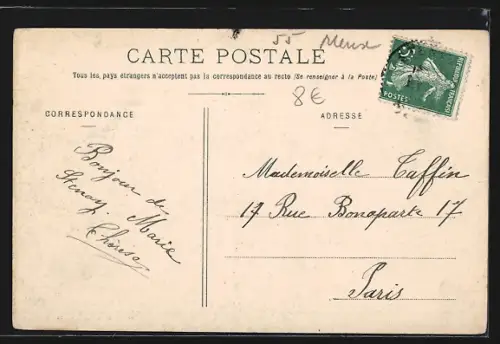 55 Meuse
CARTE POSTALE
Tous les pays étrangers n'acceptent pas la correspondance au recto (Se renseigner à la Poste)
8€
CORRESPONDANCE
ADRESSE
5c
REPUBLIQUE FRANÇAISE
POSTES
Bonjour de
Stenay. Marie
Thérèse
Mademoiselle Taffin
17 Rue Bonaparte 17
Paris